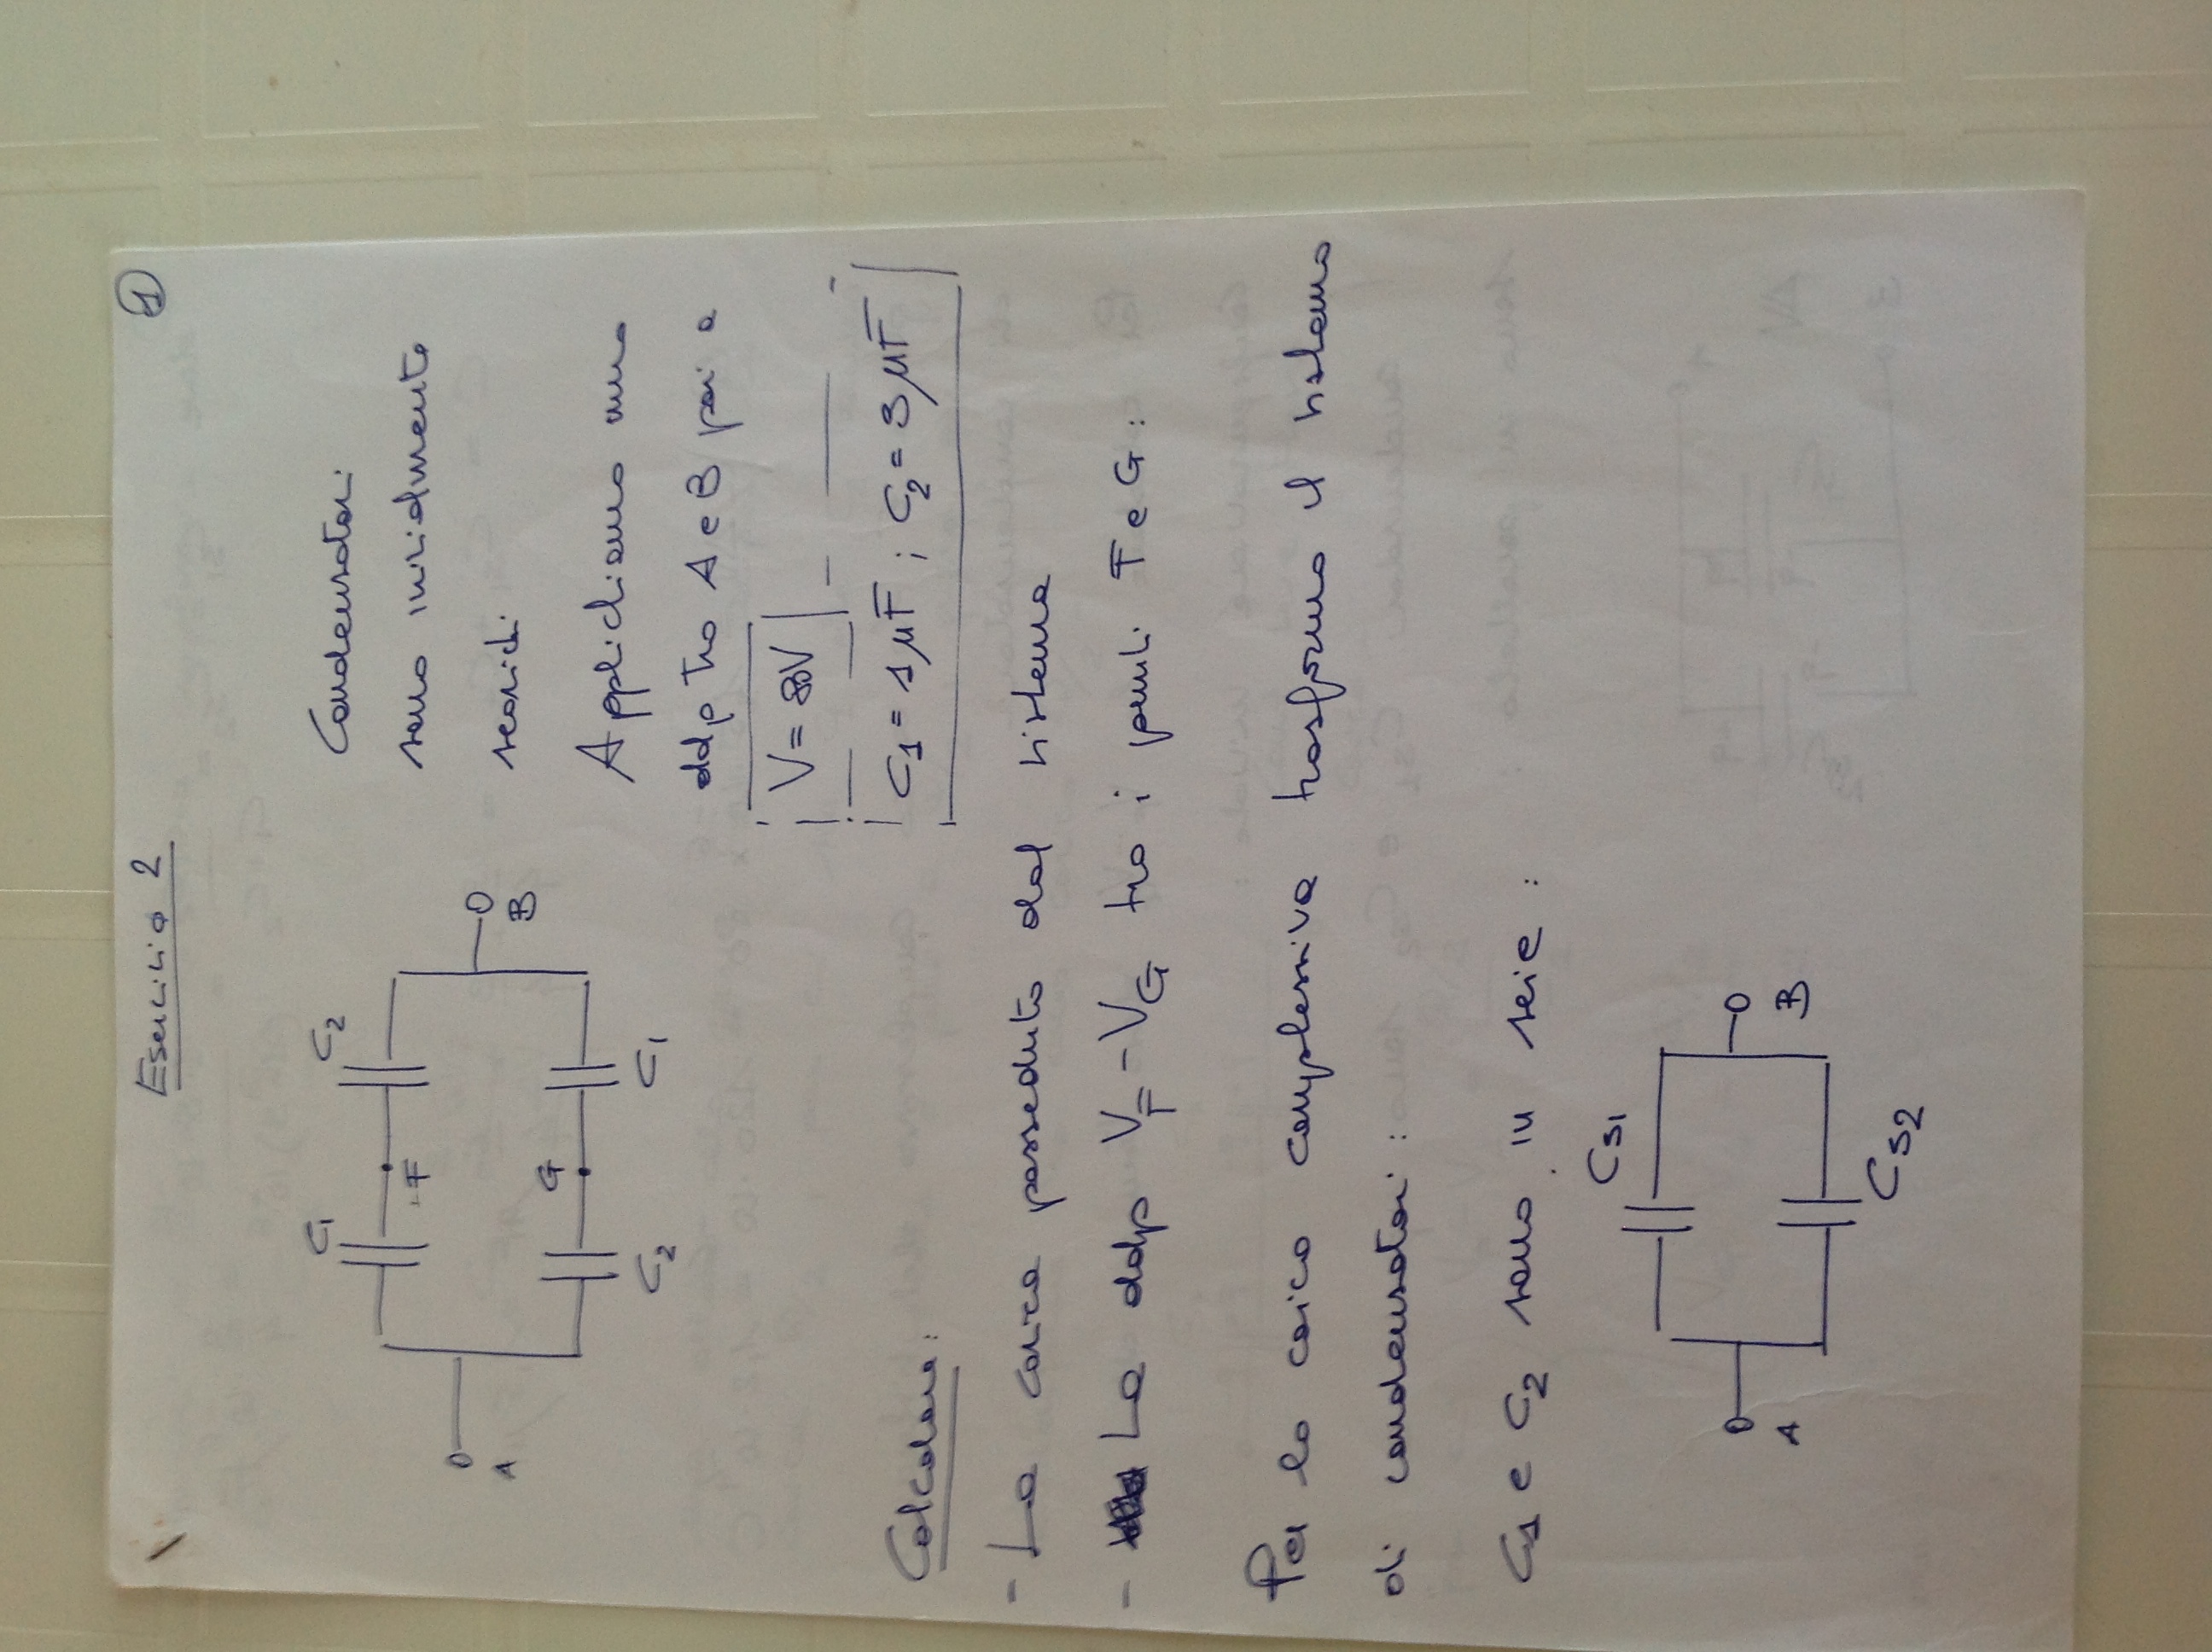 Esercizio 2
1
C1
C2
F
A
B
G
C2
C1
Condensatori
sono inizialmente
scarichi
Applichiamo una
ddp tra A e B pari a
V=
C1 = 1 μF ; C2 = 3 μF
Calcolare:
- La carica posseduta dal sistema
- La ddp VF - VG tra i punti F e G:
Per la carica complessiva trasformo il sistema
di condensatori:
C1 e C2 sono in serie:
CS1
A
B
CS2